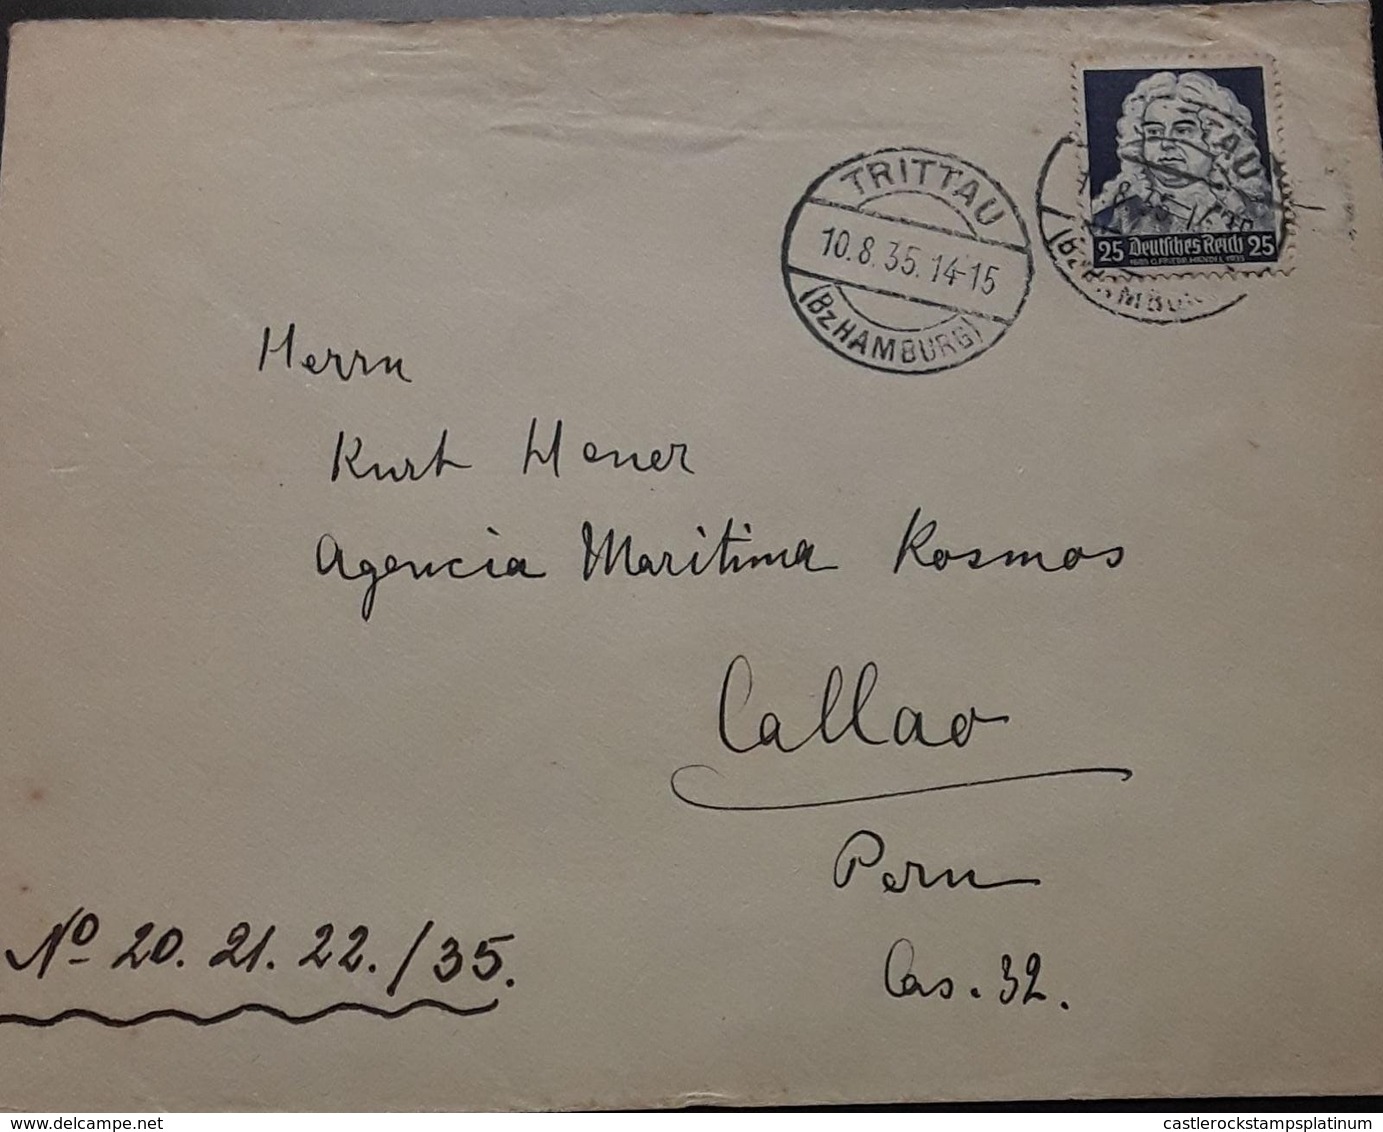 TRITTAU
10.8.35.14-15
(Bz HAMBURG)
25 Deutsches Reich 25
Herrn
Kurt
Agencia Maritima Kosmos
Callao
Peru
Cas. 32.
No 20. 21. 22./35.
delcampe.net
castlerockstampsplatinum